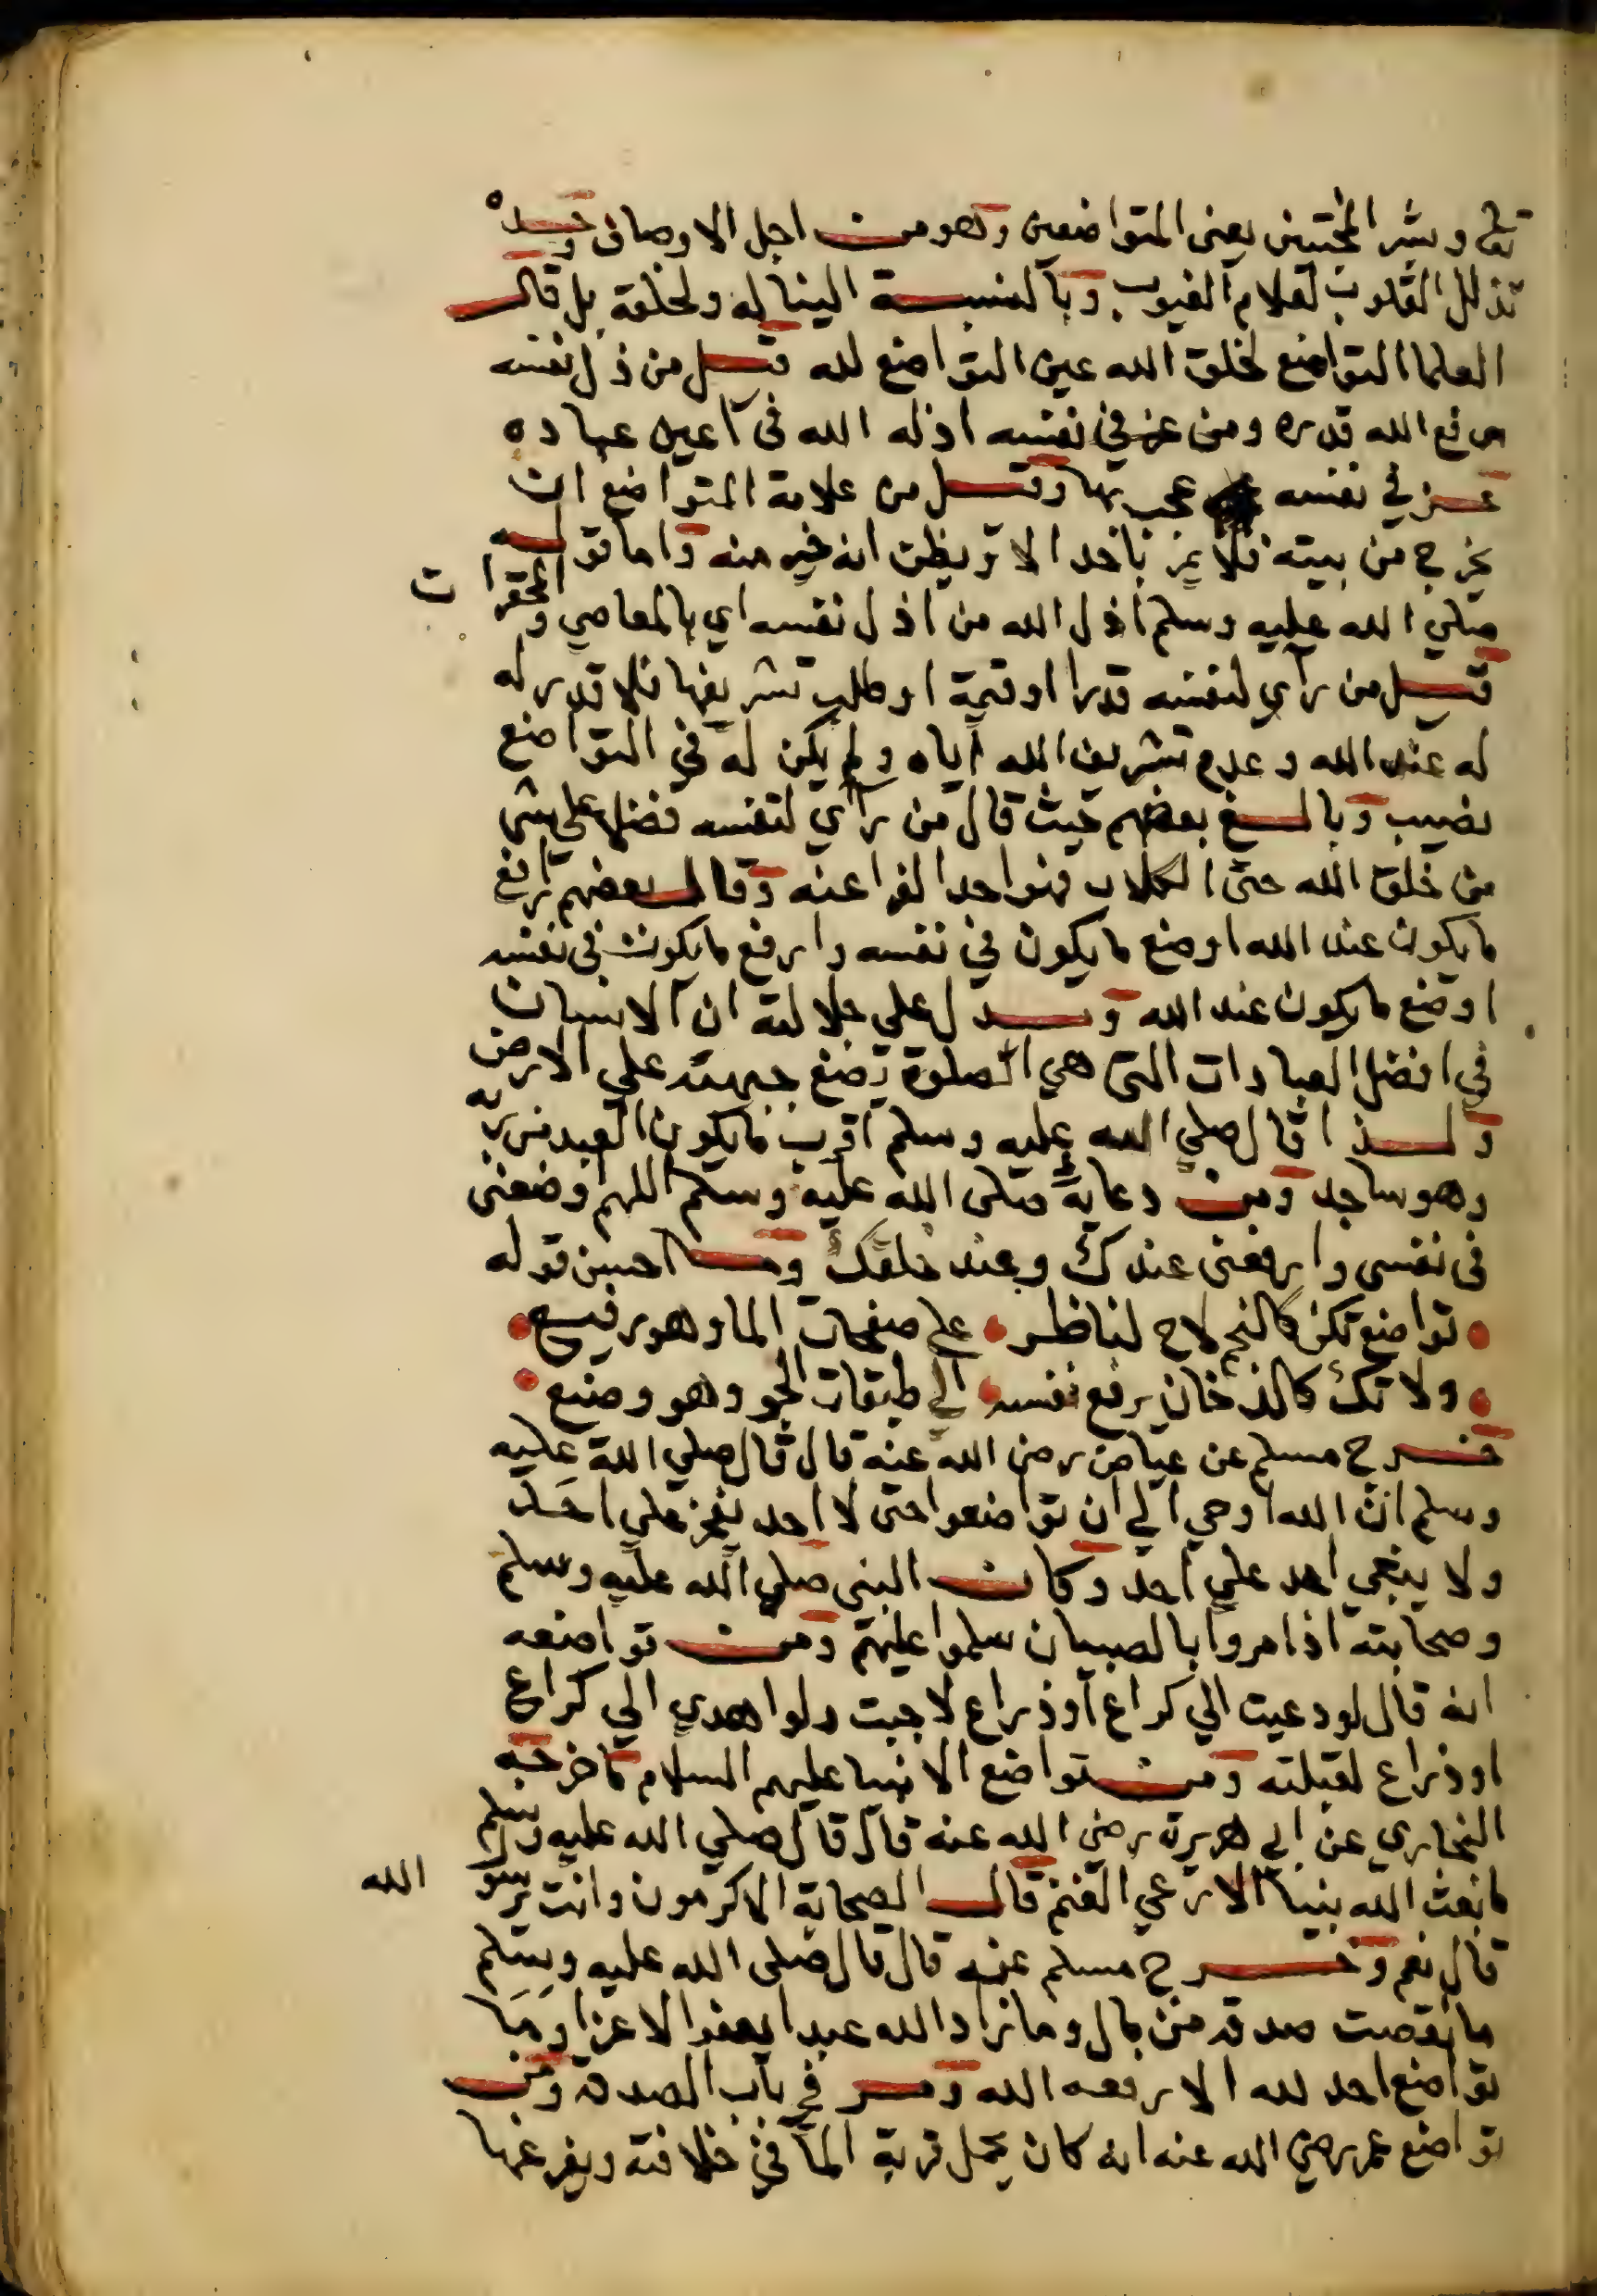 تعالى وبشر المخبتين يعني المتواضعين وهو من اجل الاوصاف وحده
تذلل القلوب لعلام الغيوب وبالنسبة الينا له ولخلقه بل قال
العلما التواضع لخلق الله عين التواضع لله قيل من ذل نفسه
رفع الله قدره ومن عز في نفسه اذله الله في اعين عباده
عز في نفسه عجب بها وقيل من علامة المتواضع ان
يخرج من بيته فلا يمر باحد الا ويظن انه خير منه واما قوله
صلي الله عليه وسلم اذل الله من اذل نفسه اي بالمعاصي والمحقرات
قيل من رأي لنفسه قدرا او قيمة او طلب تشريفها فلا قدر له
له عند الله وعدم تشريف الله اياه ولم يكن له في التواضع
نصيب وبالغ بعضهم حيث قال من رأي لنفسه فضلا علي شي
من خلق الله حتى الكلاب فهو احد الفراعنه وقال بعضهم ارفع
ما يكون عند الله اوضع ما يكون في نفسه وارفع ما يكون في نفسه
اوضع ما يكون عند الله ويدل علي جلالته ان الانسان
في افضل العبادات التي هي الصلوة يضع جبهته علي الارض
ولذا قال صلي الله عليه وسلم اقرب ما يكون العبد من ربه
وهو ساجد ومن دعايه صلى الله عليه وسلم اللهم وضعني
في نفسي وارفعني عندك وعند خلقك وما احسن قوله
تواضع تكن كالنجم لاح لناظر على صفحات الما وهو رفيع
ولا تك كالدخان يرفع نفسه الي طبقات الجو وهو وضيع
خرج مسلم عن عياض رضي الله عنه قال قال صلي الله عليه
وسلم ان الله اوحي الي ان تواضعوا حتى لا احد يفخر علي احد
ولا يبغي احد علي احد وكان النبي صلي الله عليه وسلم
وصحابته اذا مروا بالصبيان سلموا عليهم ومن تواضعه
انه قال لو دعيت الي كراع او ذراع لاجبت ولو اهدي الي كراع
او ذراع لقبلته ومن تواضع الانبيا عليهم السلام ما خرجه
البخاري عن ابي هريرة رضي الله عنه قال قال صلي الله عليه وسلم
ما بعث الله نبيا الا رعي الغنم قال الصحابة الاكرمون وانت يرسو الله
قال نعم وخرج مسلم عنه قال قال صلى الله عليه وسلم
ما نقصت صدقه من مال وما زاد الله عبدا بعفو الا عزا وما
تواضع احد لله الا رفعه الله ومر في باب الصدقة ومن
تواضع عمر رضي الله عنه انه كان يحمل قربة الما في خلافته ويفرغها